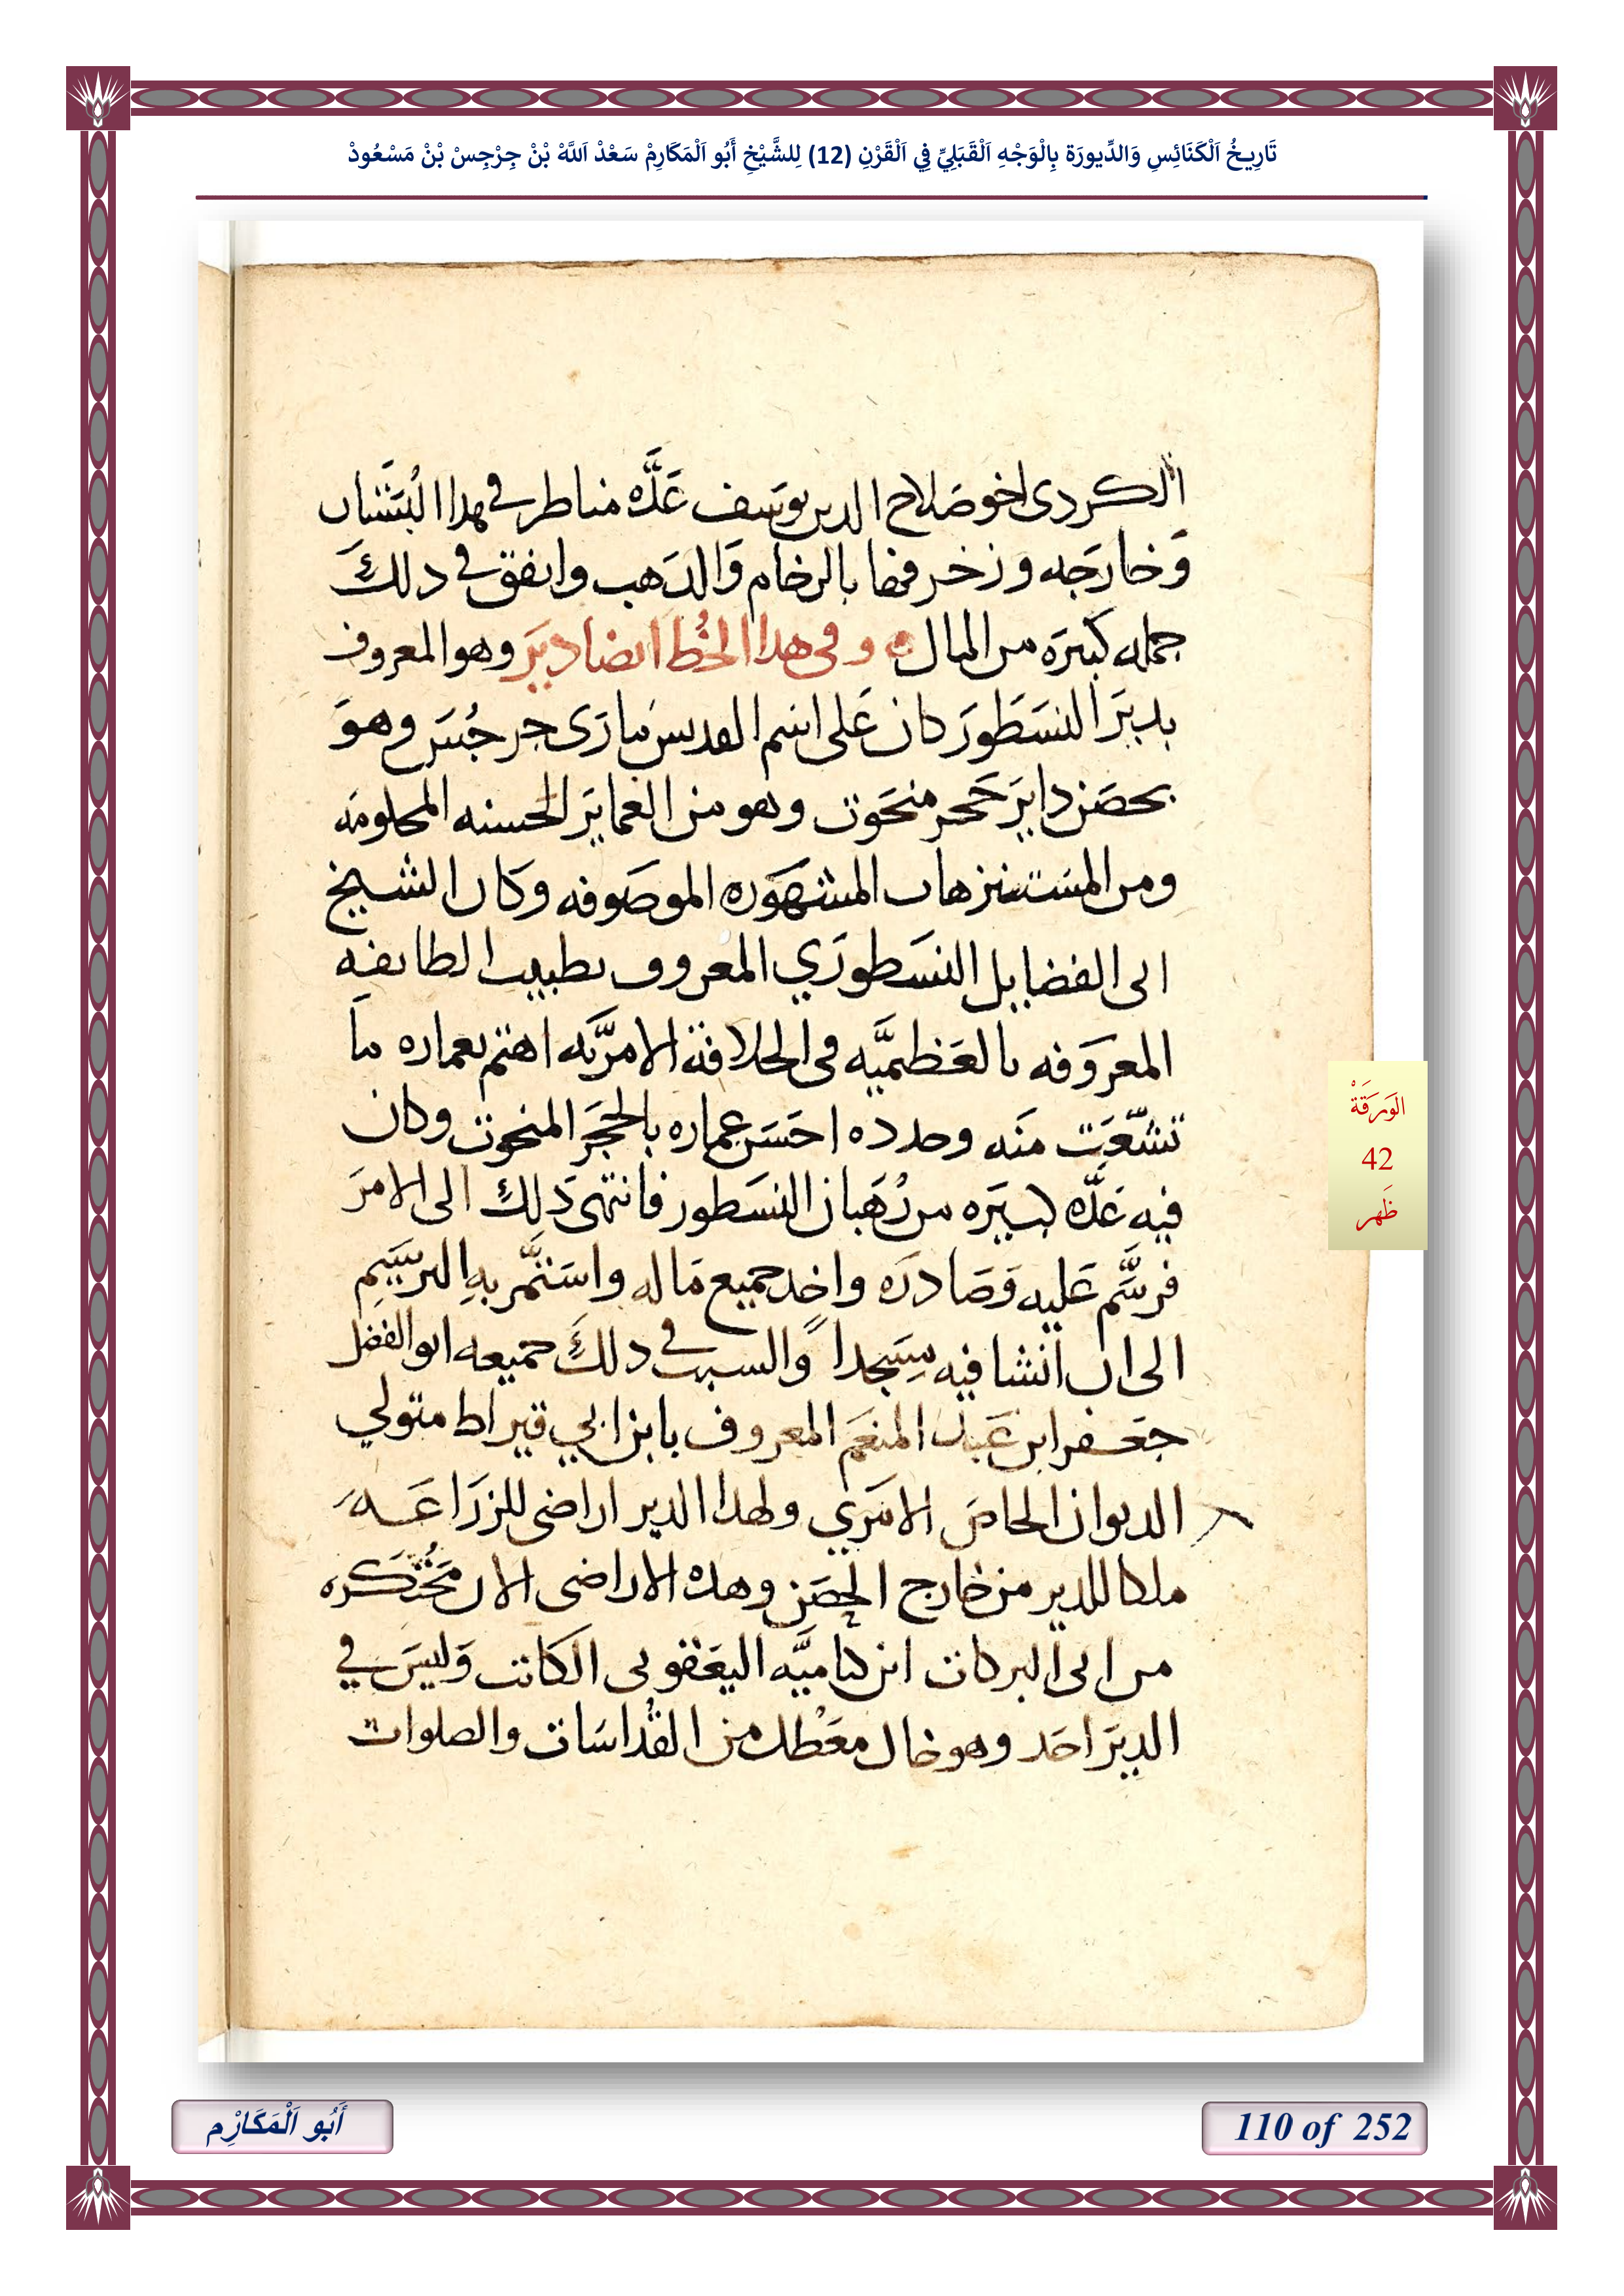 تَارِيخُ اَلْكَنَائِسِ وَالدِّيورَة بِالْوَجْهِ اَلْقَبَلِيِّ فِي اَلْقَرْنِ (12) لِلشَّيْخِ أَبُو اَلْمَكَارِمْ سَعْدْ اَللَّهْ بْنْ جِرْجِسْ بْنْ مَسْعُودْ
الكردى اخو صلاح الدين يوسف عدّه مناطر في هدا البستان
وخارجه وزخرفها بالرخام والدهب وانفق في دلك
جمله كبيره من المال وفى هدا الخُط ايضا دير وهو المعروف
بدير النسطور كان على اسم القديس مارى جرجس وهو
بحصن داير حجر منحوت وهو من العماير الحسنه
ومن المستنزهات المشهوره الموصوفه وكان الشيخ
ابى الفضايل النسطوري المعروف بطبيب الطايفه
المعروفه بالعظميّه فى الخلافة الامريّه اهتم بعماره ما
تشعّت منه وجدده احسن عماره بالحجر المنحوت وكان
فيه عدّه كبيره من رُهبان النسطور فانتهى دلك الى الامر
فرسّم عليه وصادره واخد جميع ماله واستمّر به الترسيم
الى ان انشا فيه مسجداً والسبب في دلك جميعه ابو الفضل
جعفر ابن عبد المنعم المعروف بابن ابي قيراط متولي
الديوان الخاص الامري ولهدا الدير اراضى للزراعه
ملكا للدير من خارج الحصن وهده الاراضى الان مُحتكره
من ابى البركات ابن كاميّه اليعقوبى الكاتب وليس في
الدير احد وهو خال معطل من القُداسات والصلوات
الوَرَقَةْ
42
ظَهر
أَبُو اَلْمَكَارِْم
110 of 252